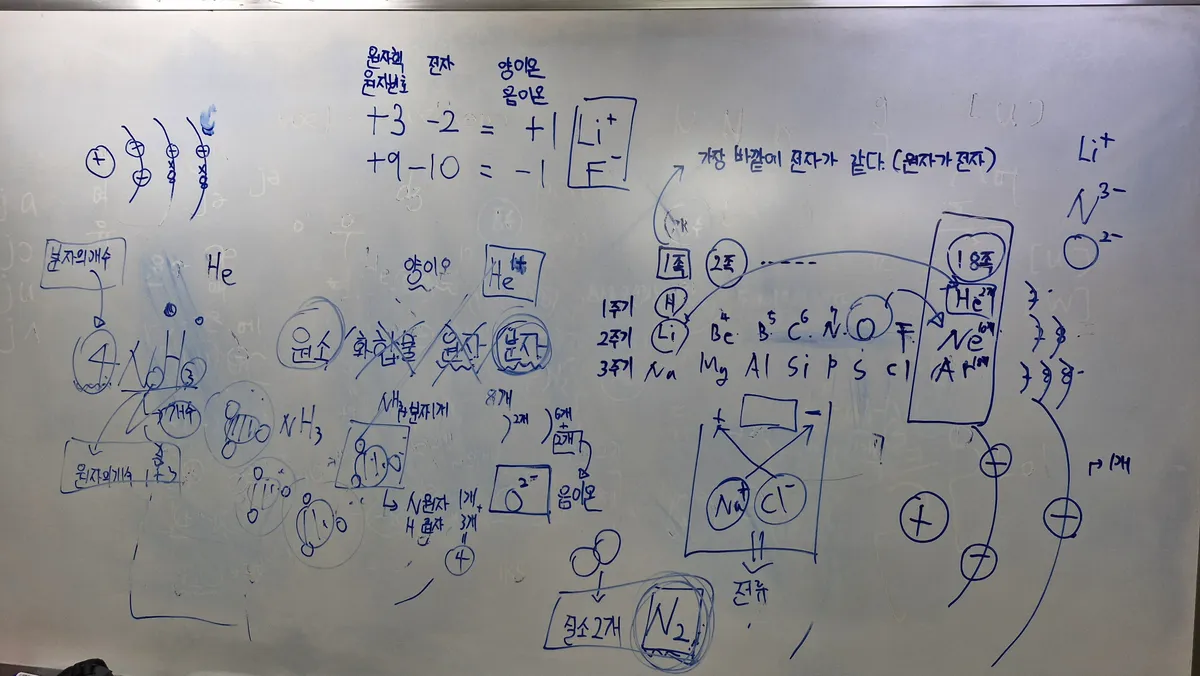 원자핵 전자 양이온
원자번호 음이온
+3 -2 = +1 Li⁺
+9 -10 = -1 F⁻
가장 바깥에 전자가 같다. (원자가 전자)
Li⁺
N³⁻
O²⁻
분자의개수
He
4NH₃
개수
원자의개수 1+3
양이온
He
원소 / 화합물 원자 분자
NH₃
NH₃ 분자1개
N원자 1개
H원자 3개
4
8개
2개
6개
+
2개
O²⁻ 음이온
질소2개 N₂
1족 2족 ----- 18족
1주기 H He 2개
2주기 Li Be 4 B 5 C 6 N 7 O F Ne
3주기 Na Mg Al Si P S Cl Ar
+ -
Na⁺ Cl⁻
전류
+ + +
1개